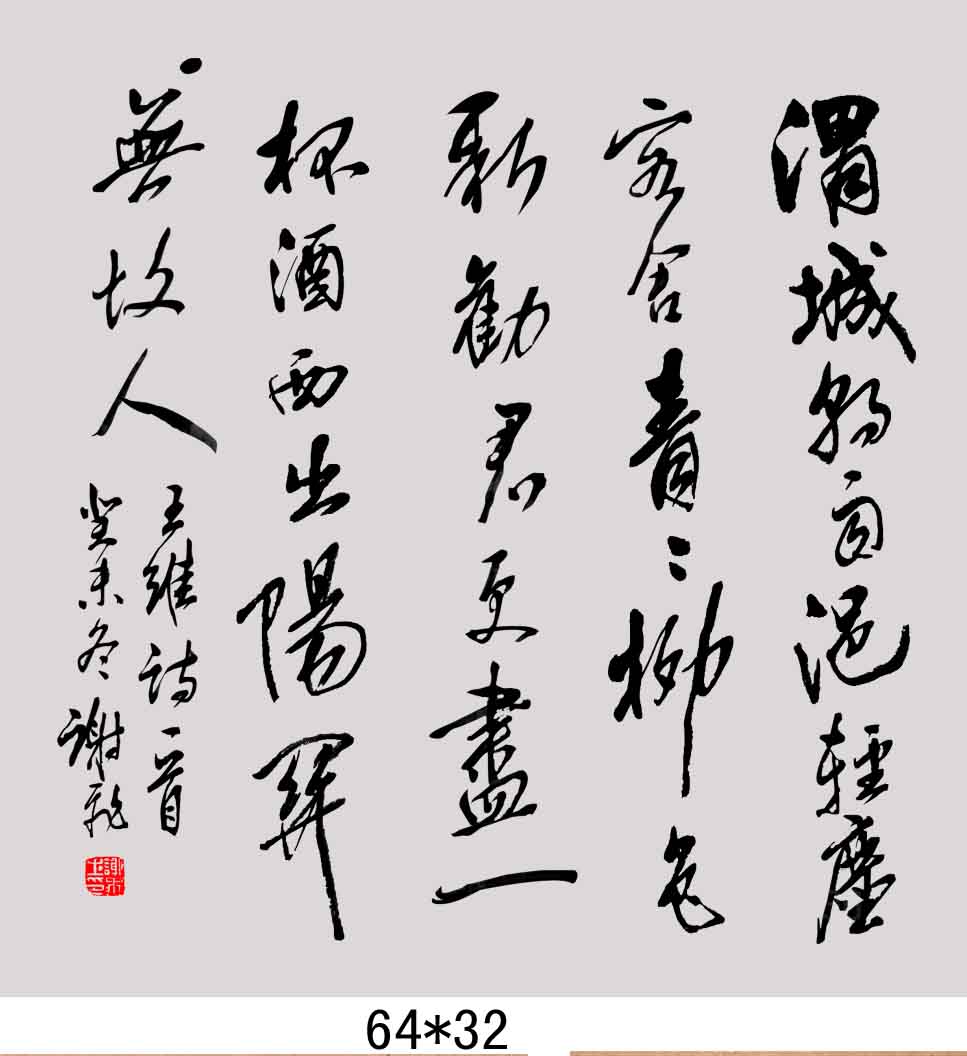 渭城朝雨浥輕塵
客舍青〻柳色
新勸君更盡一
杯酒西出陽關
無故人
王維詩一首
癸未冬謝
64*32